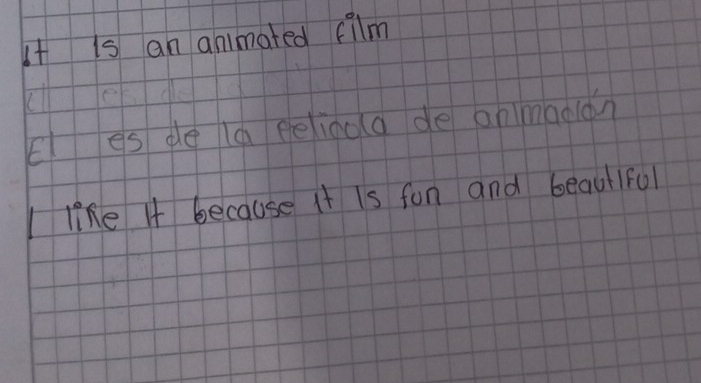 It is an animated film
El es de
El es de la pelicola de animación
I like it because it is fun and beautiful